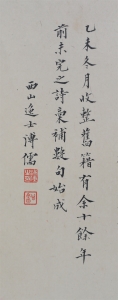 乙未冬月收整舊籍有余十餘年
前未完之詩稾補數句始成
西山逸士溥儒